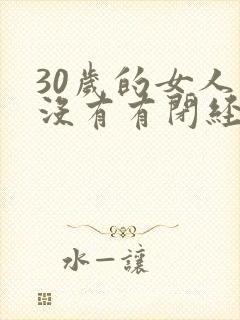 30歲的女人
沒有有閉經
水一讓